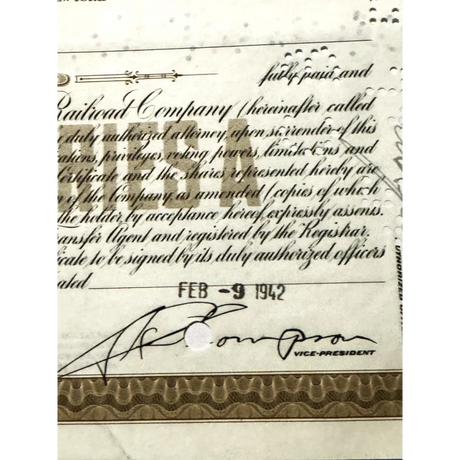 fully paid and
Railroad Company (hereinafter called
duly authorized attorney, upon surrender of this
privileges, voting powers, limitations and
Certificate and the shares represented hereby are
of the Company, as amended (copies of which
the holder, by acceptance hereof, expressly assents.
Transfer Agent and registered by the Registrar.
to be signed by its duly authorized officers
FEB -9 1942
Thompson
VICE-PRESIDENT